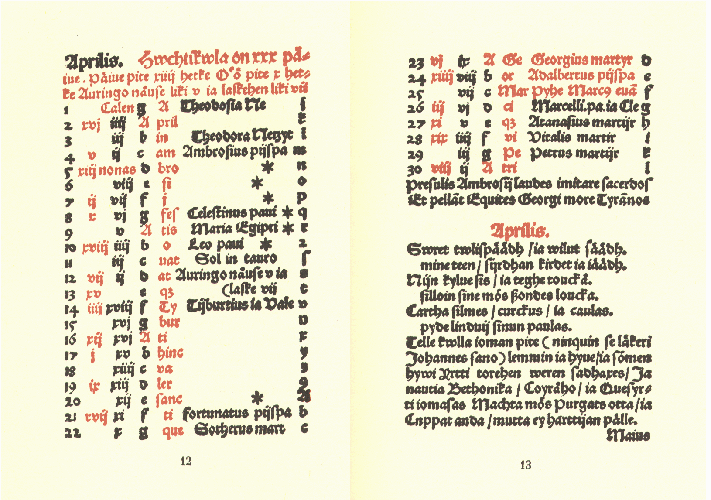 Aprilis. Hwchtikwla on xxx pä-
iue. Päiue pite xiiij hetke Oö pite x het-
ke Auringo nouse liki v ia laskehen liki vii
1 Calen g A Theodosia Ne
2 xvj iiij A pril
3 iij b in Theodora Neitzyt
4 v ij c am Ambrosius pijspa m
5 xiij nonas d bro * n
6 viij e si * o
7 ij vij f j * p
8 x vj g fes Celestinus paui * q
9 v A tis Maria Egipti * r
10 xviij iiij b o Leo paui *
11 iij c nat Sol in tauro
12 vij ij d at Auringo nouse v ia
13 xv e qz (laske vij
14 iiij xviij f Ty Tijburtius ia Vale v
15 xvj g bur
16 xij xvj A ti
17 j xv b hinc
18 xiiij c va
19 ix xiij d ler
20 xij e sanc *
21 xvij xi f ti fortunatus pijspa b
22 x g que Sotherus mart c
12
23 vj ix A Ge Georgius martyr d
24 xiiij viij b or Adalbertus pijspa e
25 vij c Mar pyhe Marcus euä f
26 iij vj d cl Marcelli.pa.ia Cle g
27 xi v e qz Atanasius martijr h
28 xix iiij f vi Vitalis martir i
29 iij g Pe Petrus martijr k
30 viij ij A tri l
Presulis Ambrosij laudes imitare sacerdos
Et pellät Equites Georgi more Tyränos
Aprilis.
Sworet twlispäädh / ia wilut säädh.
mineteen / sijrdhan kirdet ia iäädh.
Nijn kylue sis / ia teghe toucka.
silloin sine mös Hondes loucka.
Cartha silmes / curckus / ia caulas.
pyde linduij sinun paulas.
Telle kwlla ioman pite ( ninquin se läkeri
Johannes sano) lemmin ia hyue / ia sömen
hywi Yrtti torehen weren sadhaxes / Ja
nautia Bethonika / Coyräho / ia Quesyr-
ti iomasas Machta mös Purgats otta / ia
Cuppat anda / mutta ey harttijan pälle.
Maius
13